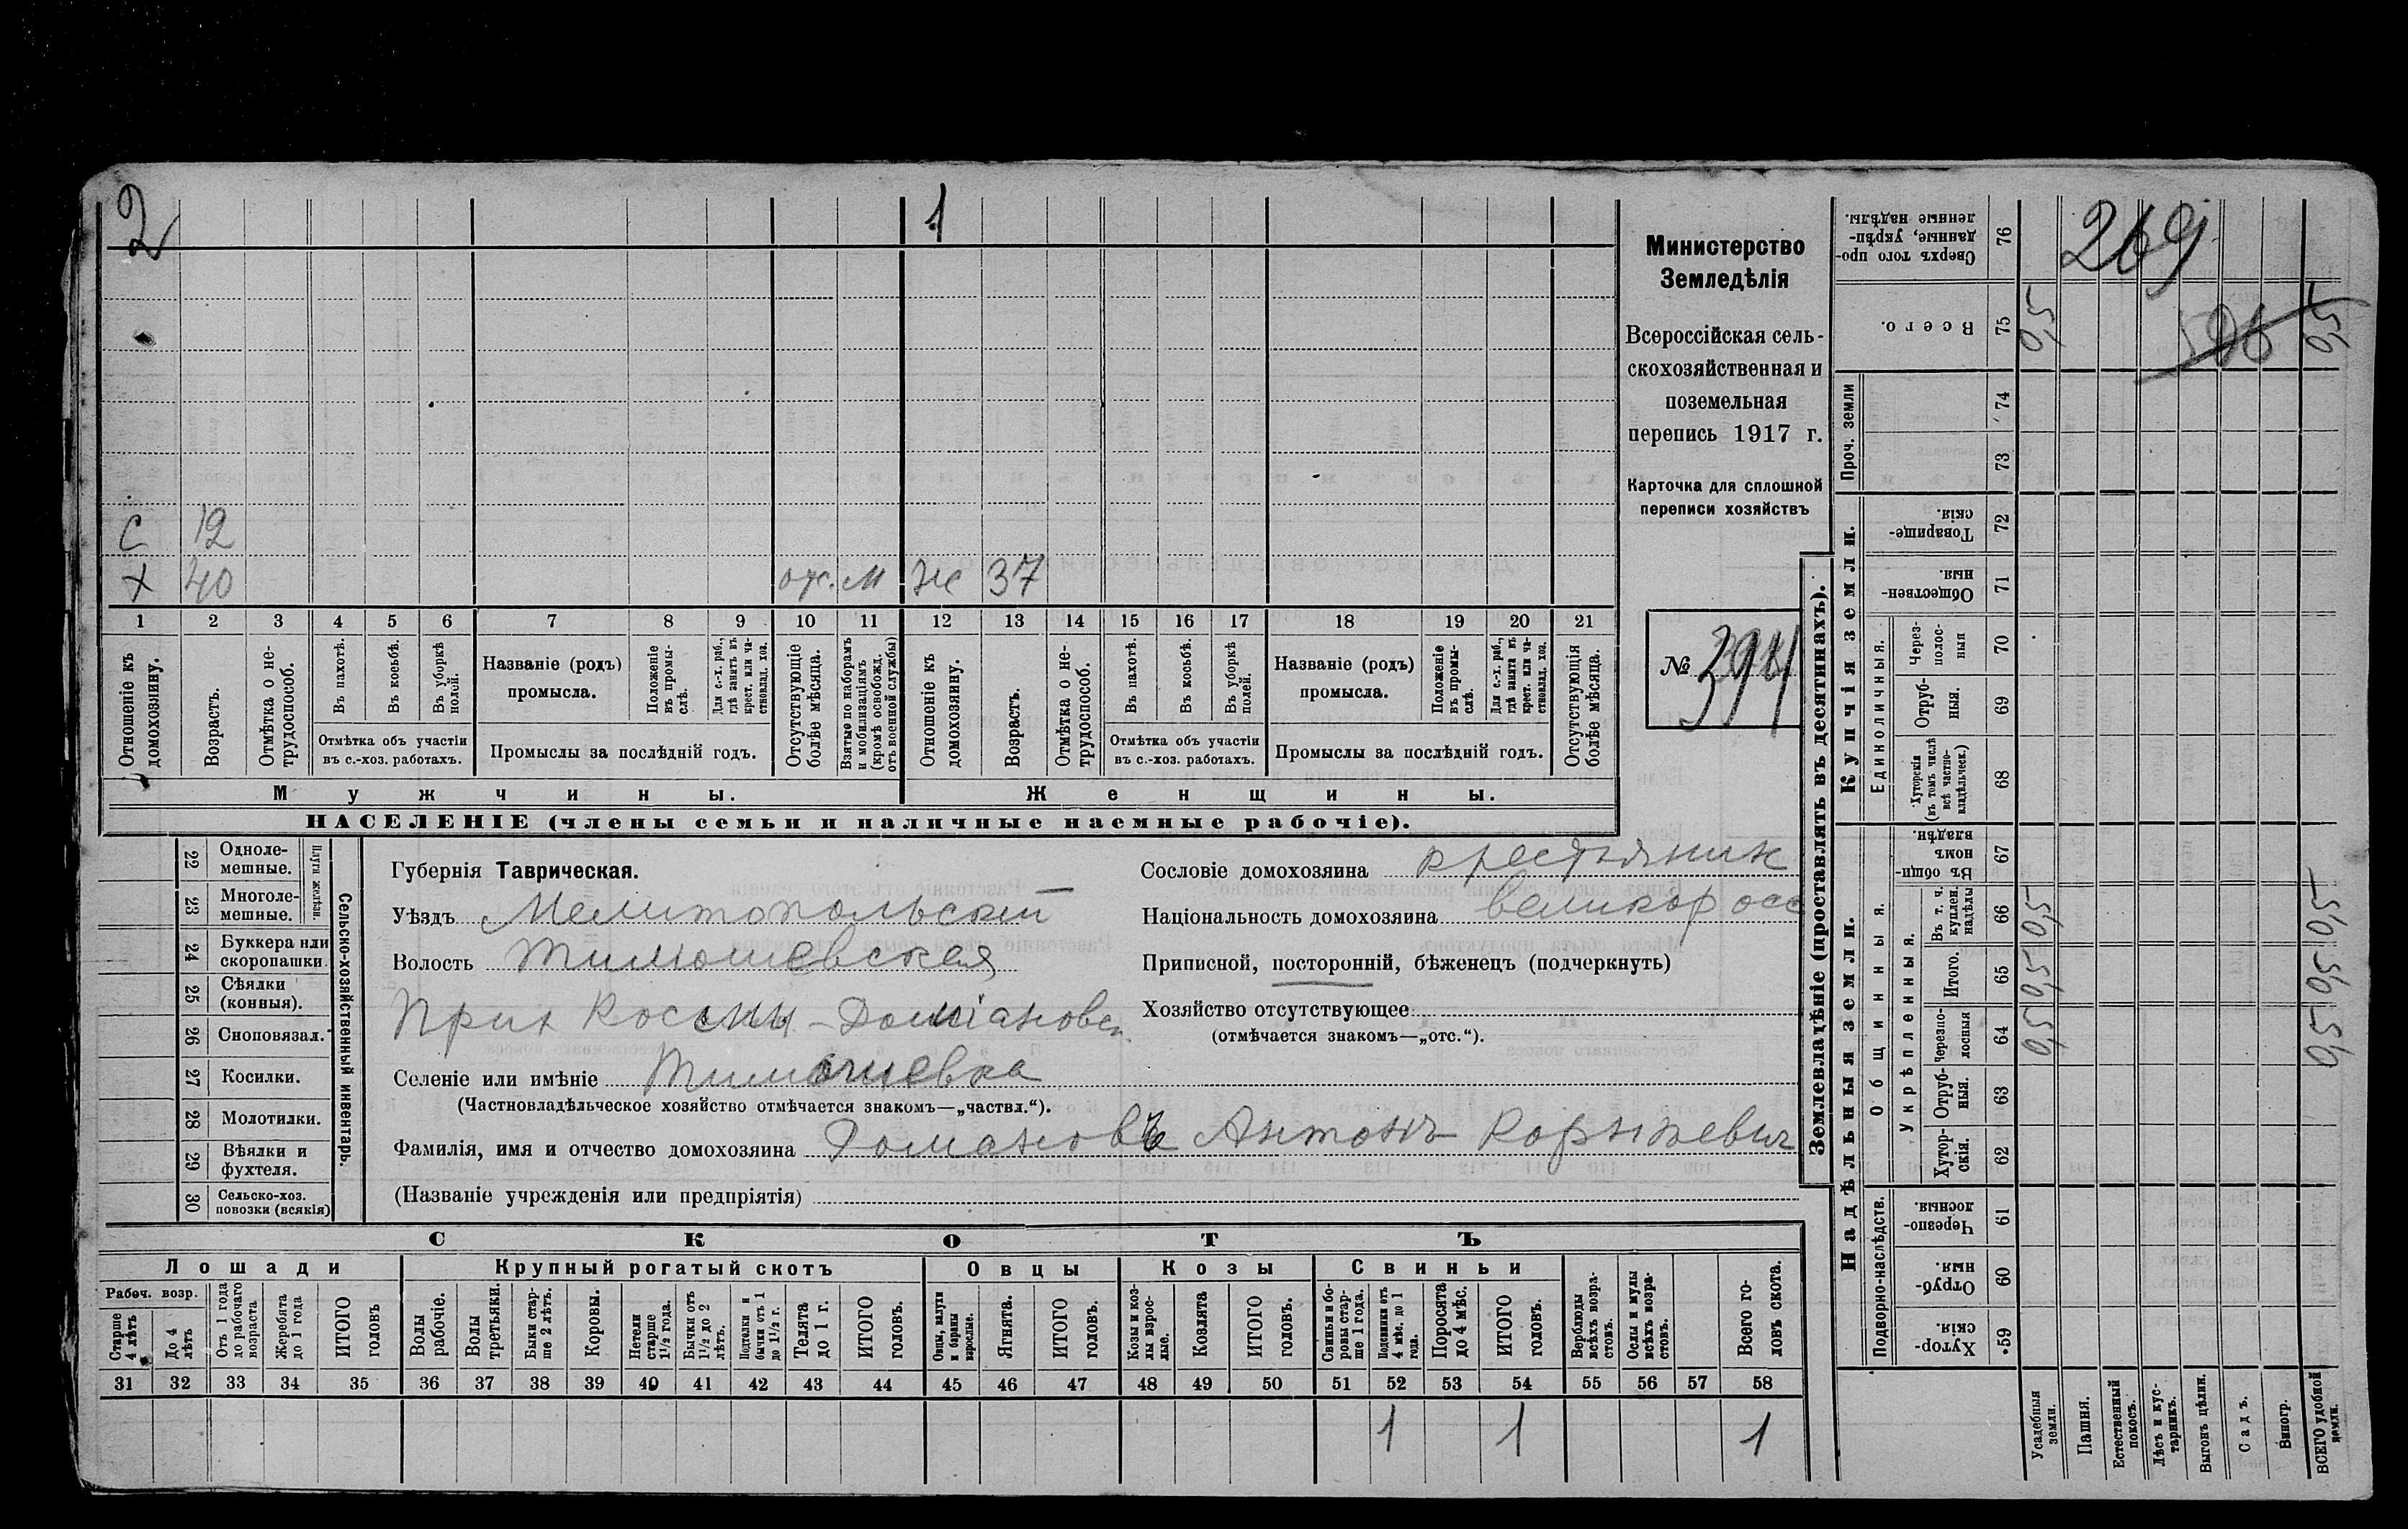 2
1
С 12
Х 40 отс. м Же 37
1 2 3 4 5 6 7 8 9 10 11 12 13 14 15 16 17 18 19 20 21
Отношеніе къ домохозяину.
Возрастъ.
Отмѣтка о не-трудоспособ.
Въ пахотѣ.
Въ косьбѣ.
Въ уборкѣ полей.
Отмѣтка объ участіи
въ с.-хоз. работахъ.
Названіе (родъ)
промысла.
Положеніе въ промы-слѣ.
Для с.-х. раб., гдѣ занятъ въ крест. или ча-стновлад. хоз.
Промыслы за послѣдній годъ.
Отсутствующіе болѣе мѣсяца.
Взятые по наборамъ и мобилизаціямъ (кромѣ освобожд. отъ военной службы)
Отношеніе къ домохозяину.
Возрастъ.
Отмѣтка о не-трудоспособ.
Въ пахотѣ.
Въ косьбѣ.
Въ уборкѣ полей.
Отмѣтка объ участіи
въ с.-хоз. работахъ.
Названіе (родъ)
промысла.
Положеніе въ промы-слѣ.
Для с.-х. раб., гдѣ занята въ крест. или ча-стновлад. хоз.
Промыслы за послѣдній годъ.
Отсутствующія болѣе мѣсяца.
Мужчины.
Женщины.
НАСЕЛЕНІЕ (члены семьи и наличные наемные рабочіе).
Министерство
Земледѣлія
Всероссійская сель-
скохозяйственная и
поземельная
перепись 1917 г.
Карточка для сплошной
переписи хозяйствъ
№ 394
Сельско-хозяйственный инвентарь.
Плуги желѣзн.
22 Одноле-мешные.
23 Многоле-мешные.
24 Буккера или скоропашки
25 Сѣялки (конныя).
26 Сноповязал.
27 Косилки.
28 Молотилки.
29 Вѣялки и фухтеля.
30 Сельско-хоз. повозки (всякія)
Губернія Таврическая.
Уѣздъ Мелитопольскій
Волость Тимошевская
Селеніе или имѣніе Тимошевка
(Частновладѣльческое хозяйство отмѣчается знакомъ—„частвл.“).
Фамилія, имя и отчество домохозяина Романовъ Антонъ Корнѣевич
(Названіе учрежденія или предпріятія)
Сословіе домохозяина крестьянин
Національность домохозяина великоросс
Приписной, посторонній, бѣженецъ (подчеркнуть)
Хозяйство отсутствующее
(отмѣчается знакомъ—„отс.“).
СКОТЪ
Лошади
Крупный рогатый скотъ
Овцы
Козы
Свиньи
Рабоч. возр.
Старше 4 лѣтъ
До 4 лѣтъ
Отъ 1 года до рабочаго возраста
Жеребята до 1 года
ИТОГО головъ
Волы рабочіе.
Волы третьяки.
Быки стар-ше 2 лѣтъ.
Коровы.
Нетели старше 1½ года.
Бычки отъ 1½ до 2 лѣтъ.
Подтелки и бычки отъ 1 до 1½ г.
Телята до 1 г.
ИТОГО головъ.
Овцы, валухи и бараны взрослые.
Ягнята.
ИТОГО головъ.
Козы и коз-лы взрос-лые.
Козлята
ИТОГО головъ.
Свиньи и бо-ровы стар-ше 1 года.
Подсвинки отъ 4 мѣс. до 1 года.
Поросята до 4 мѣс.
ИТОГО головъ.
Верблюды всѣхъ возра-стовъ.
Ослы и мулы всѣхъ возра-стовъ.
Всего го-ловъ скота.
31 32 33 34 35 36 37 38 39 40 41 42 43 44 45 46 47 48 49 50 51 52 53 54 55 56 57 58
1 1 1
Землевладѣніе (проставлять въ десятинахъ).
Купчія земли.
Надѣльныя земли.
Сверхъ того про-данные, укрѣп-ленные надѣлы.
76
269
Всего.
75
0,5
506
0,5
Проч. земли
74
73
Товарище-скія.
72
Обществен-ныя.
71
Единоличныя.
Через-полос-ныя
70
Отруб-ныя.
69
Хуторскія (въ томъ числѣ всѣ частно-владѣльческ.)
68
Общинныя.
Въ общин-номъ владѣн.
67
Укрѣпленныя.
Въ т. ч. куплен. надѣлы
66
0,5
0,5
Итого.
65
0,5
0,5
Черезпо-лосныя
64
0,5
0,5
Отруб-ныя.
63
Хутор-скія.
62
Подворно-наслѣдств.
Черезпо-лосныя.
61
Отруб-ныя.
60
Хутор-скія.
59
Усадебныя земли.
Пашня.
Естественный покосъ.
Лѣсъ и кус-тарникъ.
Выгонъ цѣлин.
Садъ.
Виногр.
ВСЕГО удобной земли.